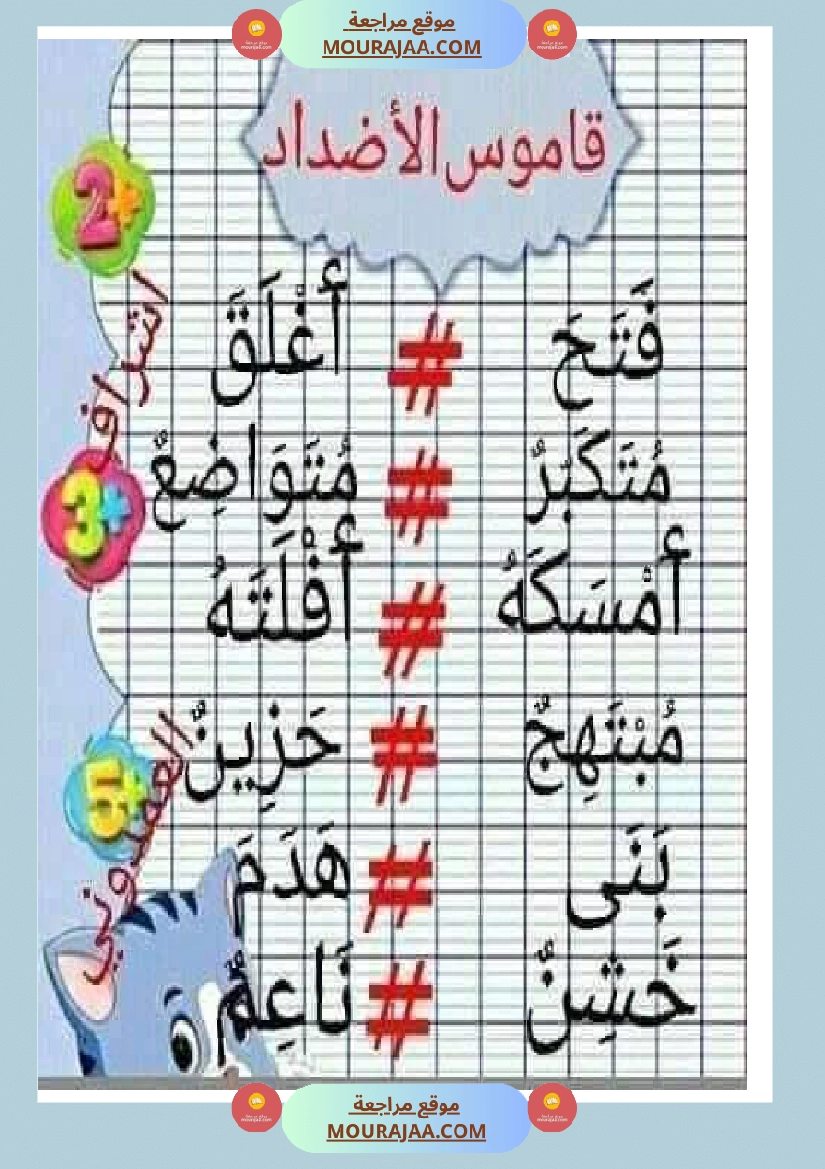 موقع مراجعة
MOURAJAA.COM
قاموس الأضداد
فَتَحَ # أَغْلَقَ
مُتَكَبِّرٌ # مُتَوَاضِعٌ
أَمْسَكَهُ # أَفْلَتَهُ
مُبْتَهِجٌ # حَزِينٌ
بَنَى # هَدَمَ
خَشِنٌ # نَاعِمٌ
2*
اشراف
3*
5*
العمدوني
موقع مراجعة
MOURAJAA.COM